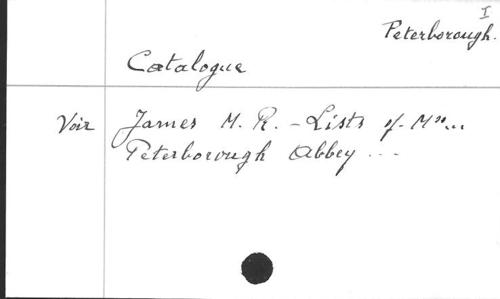 I
Peterborough.
Catalogue
Voir James M. R. - Lists of Mss...
Peterborough Abbey ...